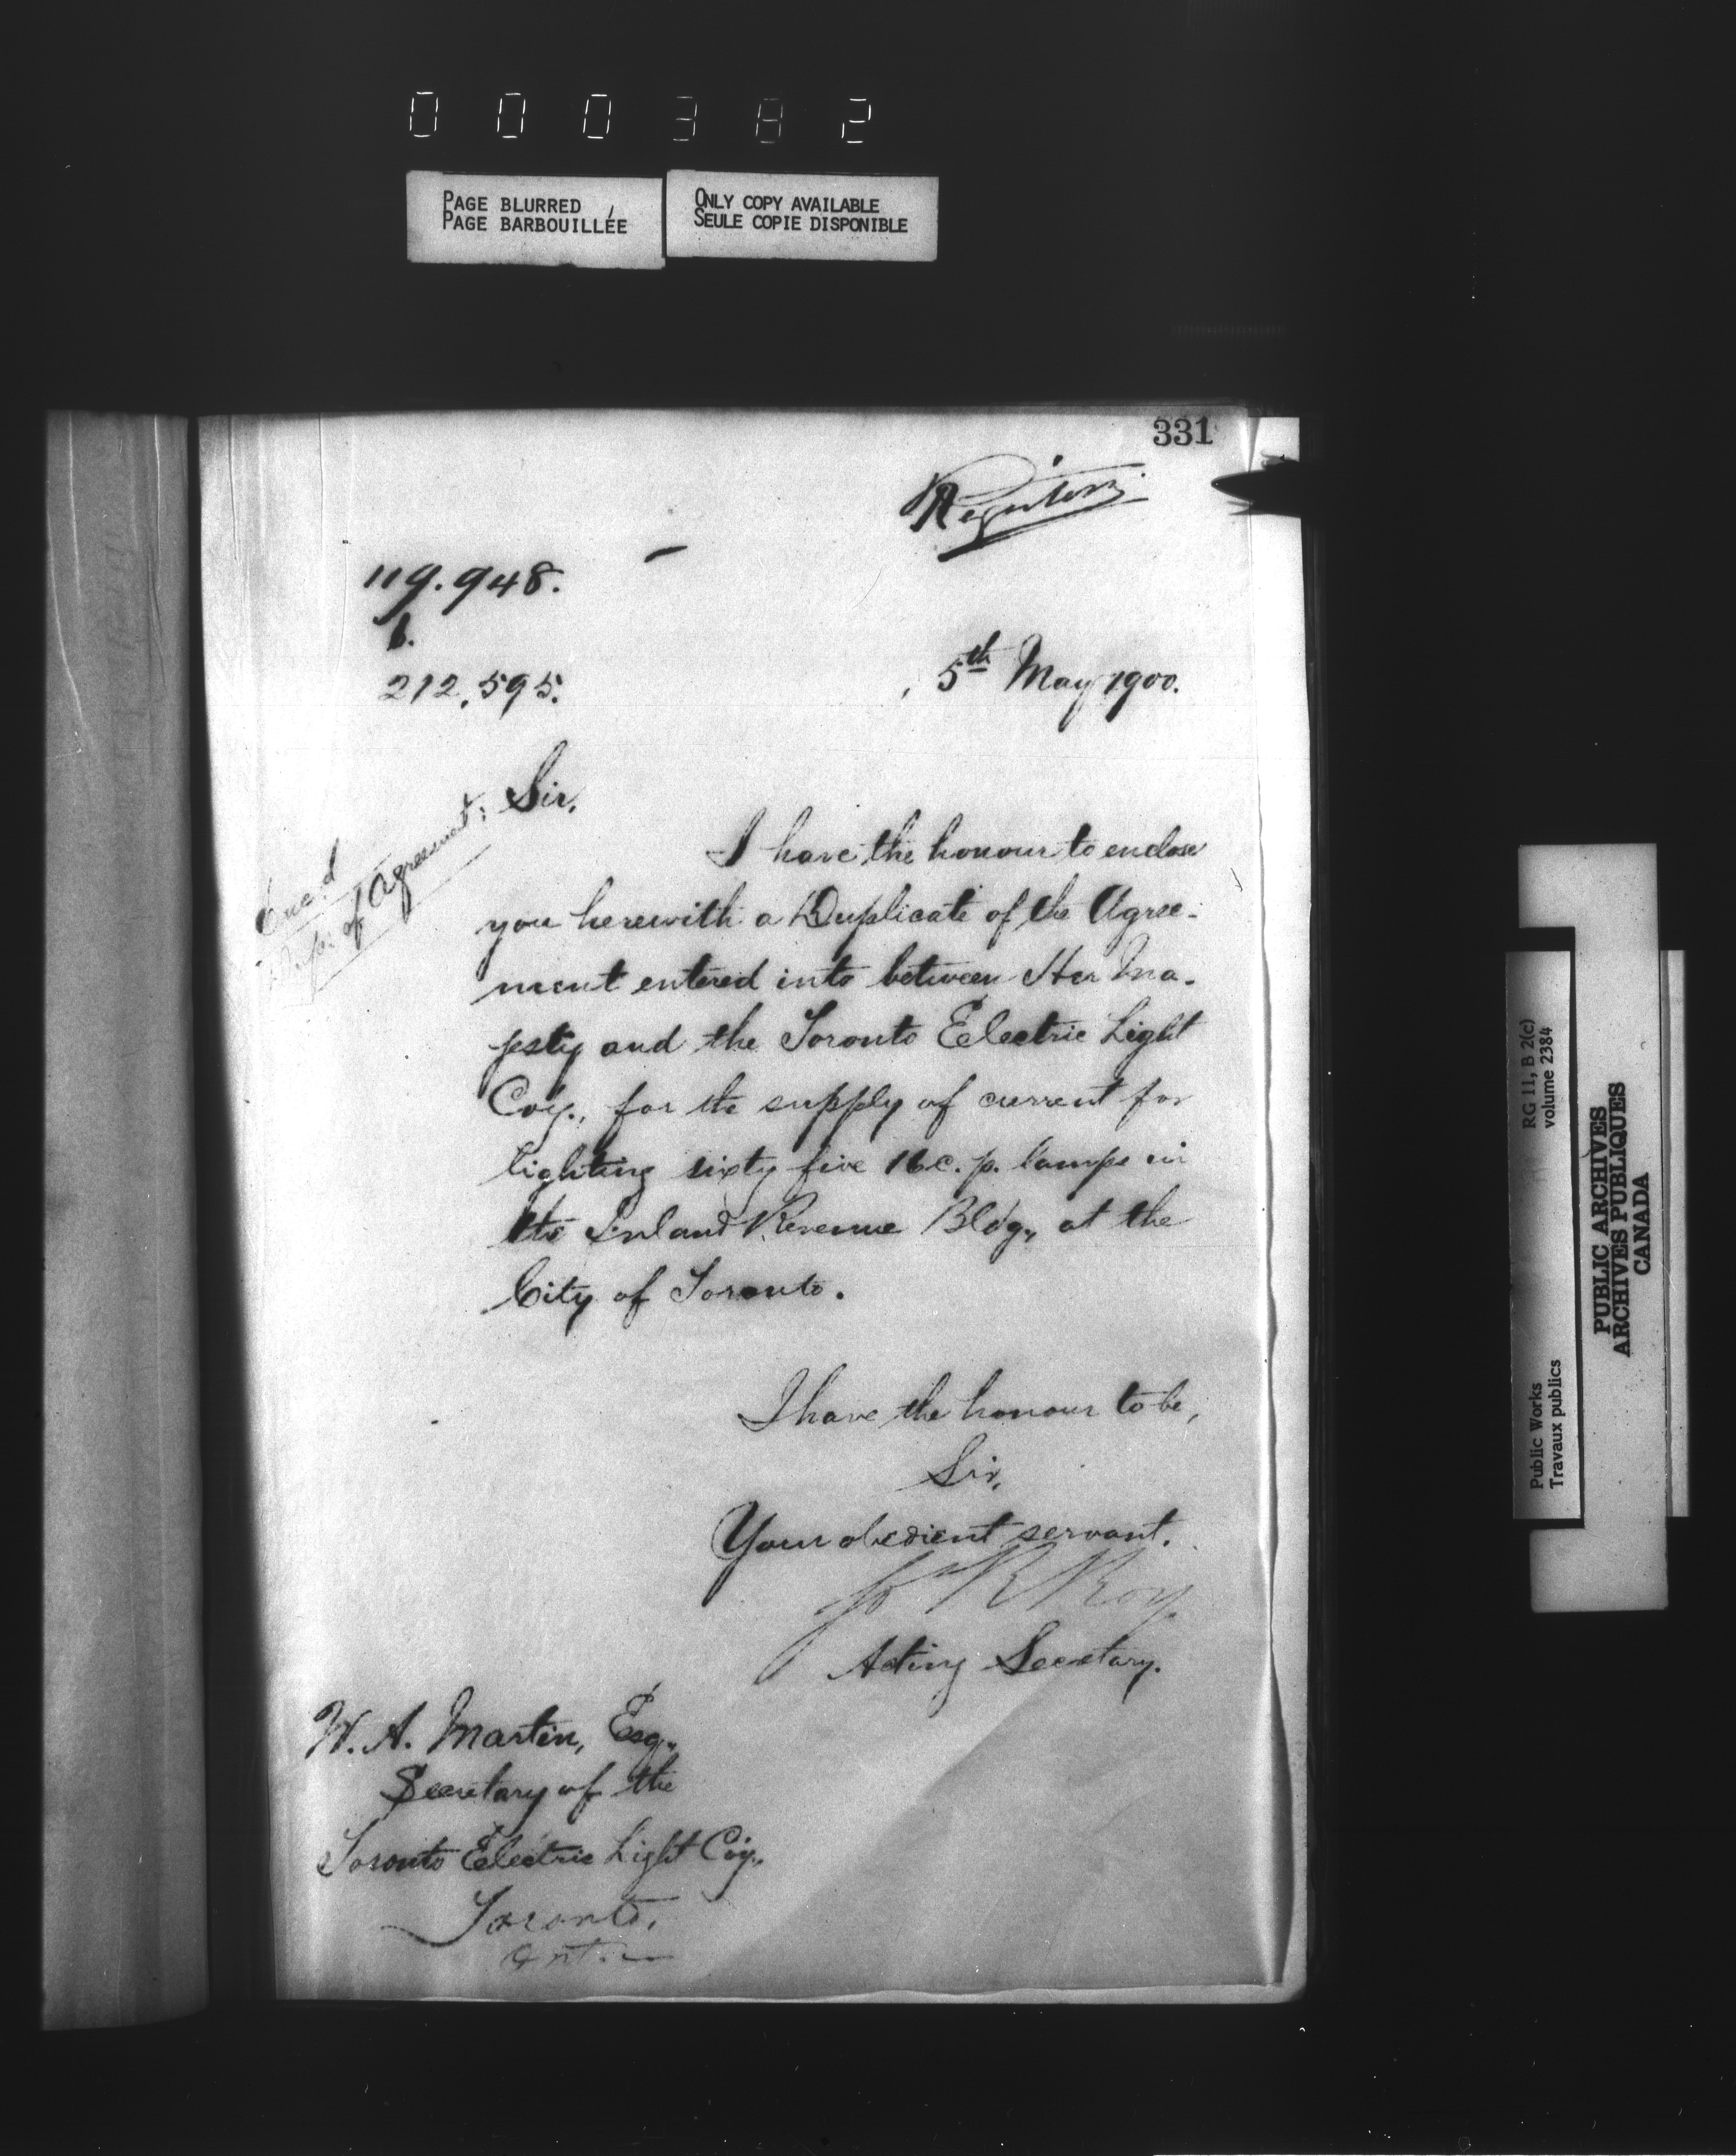 000382
PAGE BLURRED
PAGE BARBOUILLÉE
ONLY COPY AVAILABLE
SEULE COPIE DISPONIBLE
331
119.948.
212,595.
5th May 1900.
Sir,
Encd
Dupe of Agreement;
I have the honour to enclose
you herewith a Duplicate of the Agree-
ment entered into between Her Ma-
jesty and the Toronto Electric Light
Coy., for the supply of current for
lighting sixty five 16 c. p. lamps in
the Inland Revenue Bldg, at the
City of Toronto.
I have the honour to be,
Sir,
Your obedient servant.
Jos R Roy
Acting Secretary.
W. A. Martin, Esq.,
Secretary of the
Toronto Electric Light Coy.,
Toronto,
Ont.
RG 11, B 2(c)
volume 2384
Public Works
Travaux publics
PUBLIC ARCHIVES
ARCHIVES PUBLIQUES
CANADA